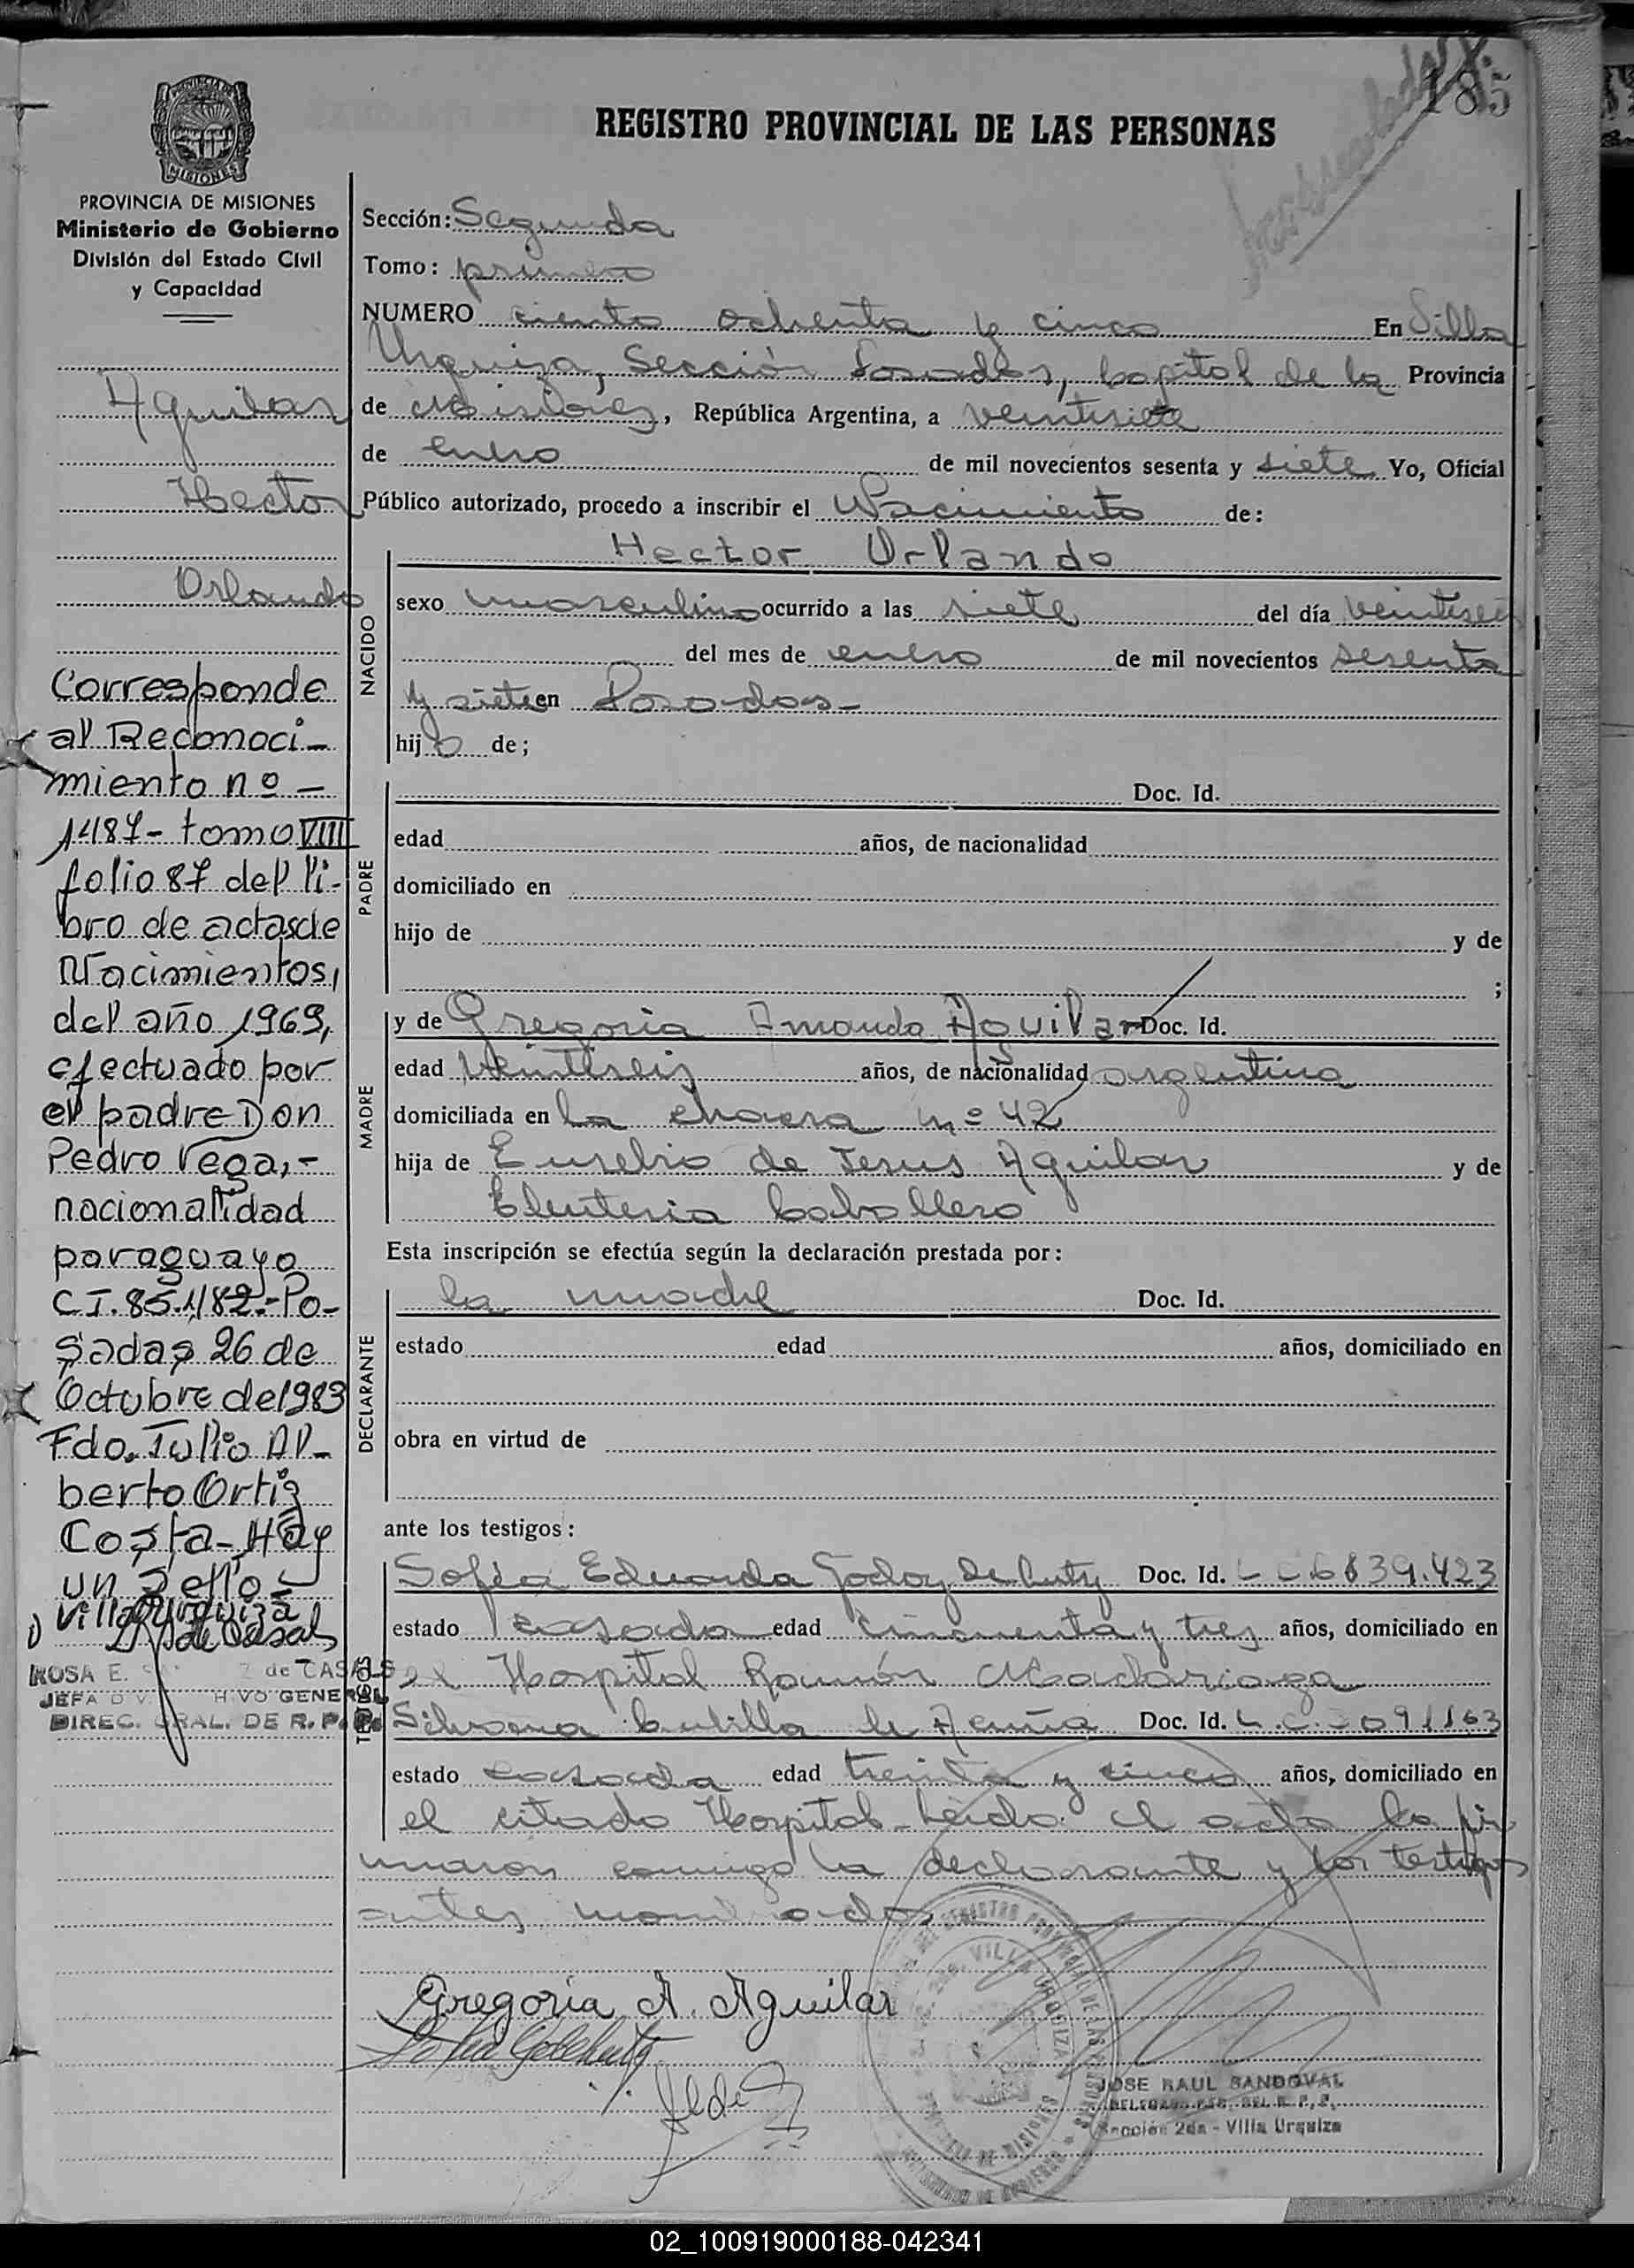 185
REGISTRO PROVINCIAL DE LAS PERSONAS
PROVINCIA DE
MISIONES
PROVINCIA DE MISIONES
Ministerio de Gobierno
División del Estado Civil
y Capacidad
Aguilar
Hector
Orlando
Corresponde
al Reconoci-
miento nº -
1487- tomo VIII
folio 87 del li-
bro de actas de
Nacimientos,
del año 1969,
efectuado por
el padre Don
Pedro Vega,-
nacionalidad
paraguayo
C.I. 85.182.- Po-
sadas 26 de
Octubre de 1983
Fdo. Julio Al-
berto Ortiz
Costa- Hay
un sello
Villa Urquiza
ROSA E. de CASALS
JEFA DIV. ARCHIVO GENERAL
DIREC. GRAL. DE R. P.
Sección: Segunda
Tomo: primero
NUMERO ciento ochenta y cinco En Villa
Urquiza, Sección Posadas, Capital de la Provincia
de Misiones, República Argentina, a veintisiete
de enero de mil novecientos sesenta y siete Yo, Oficial
Público autorizado, procedo a inscribir el Nacimiento de:
NACIDO
Hector Orlando
sexo masculino ocurrido a las siete del día veintiseis
del mes de enero de mil novecientos sesenta
y siete en Posadas-
hijo de;
PADRE
Doc. Id.
edad años, de nacionalidad
domiciliado en
hijo de y de
;
MADRE
y de Gregoria Amanda Aguilar Doc. Id.
edad veintiseis años, de nacionalidad argentina
domiciliada en la chacra nº 42
hija de Eusebio de Jesus Aguilar y de
Eleuteria Caballero
Esta inscripción se efectúa según la declaración prestada por:
DECLARANTE
la madre Doc. Id.
estado edad años, domiciliado en
obra en virtud de
ante los testigos:
TESTIGOS
Sofia Eduarda Godoy de Doc. Id. L C.6839.423
estado casada edad cincuenta y tres años, domiciliado en
el Hospital Ramón Madariaga
Silvana de Acuña Doc. Id. L.C.-091163
estado casada edad treinta y cinco años, domiciliado en
el citado Hospital- Leida el acta la fir
maron conmigo la declarante y los testigos
antes nombrados
Gregoria A. Aguilar
JOSE RAUL SANDOVAL
DELEGADO DEL R. P. P.
Sección 2da - Villa Urquiza
02_100919000188-042341